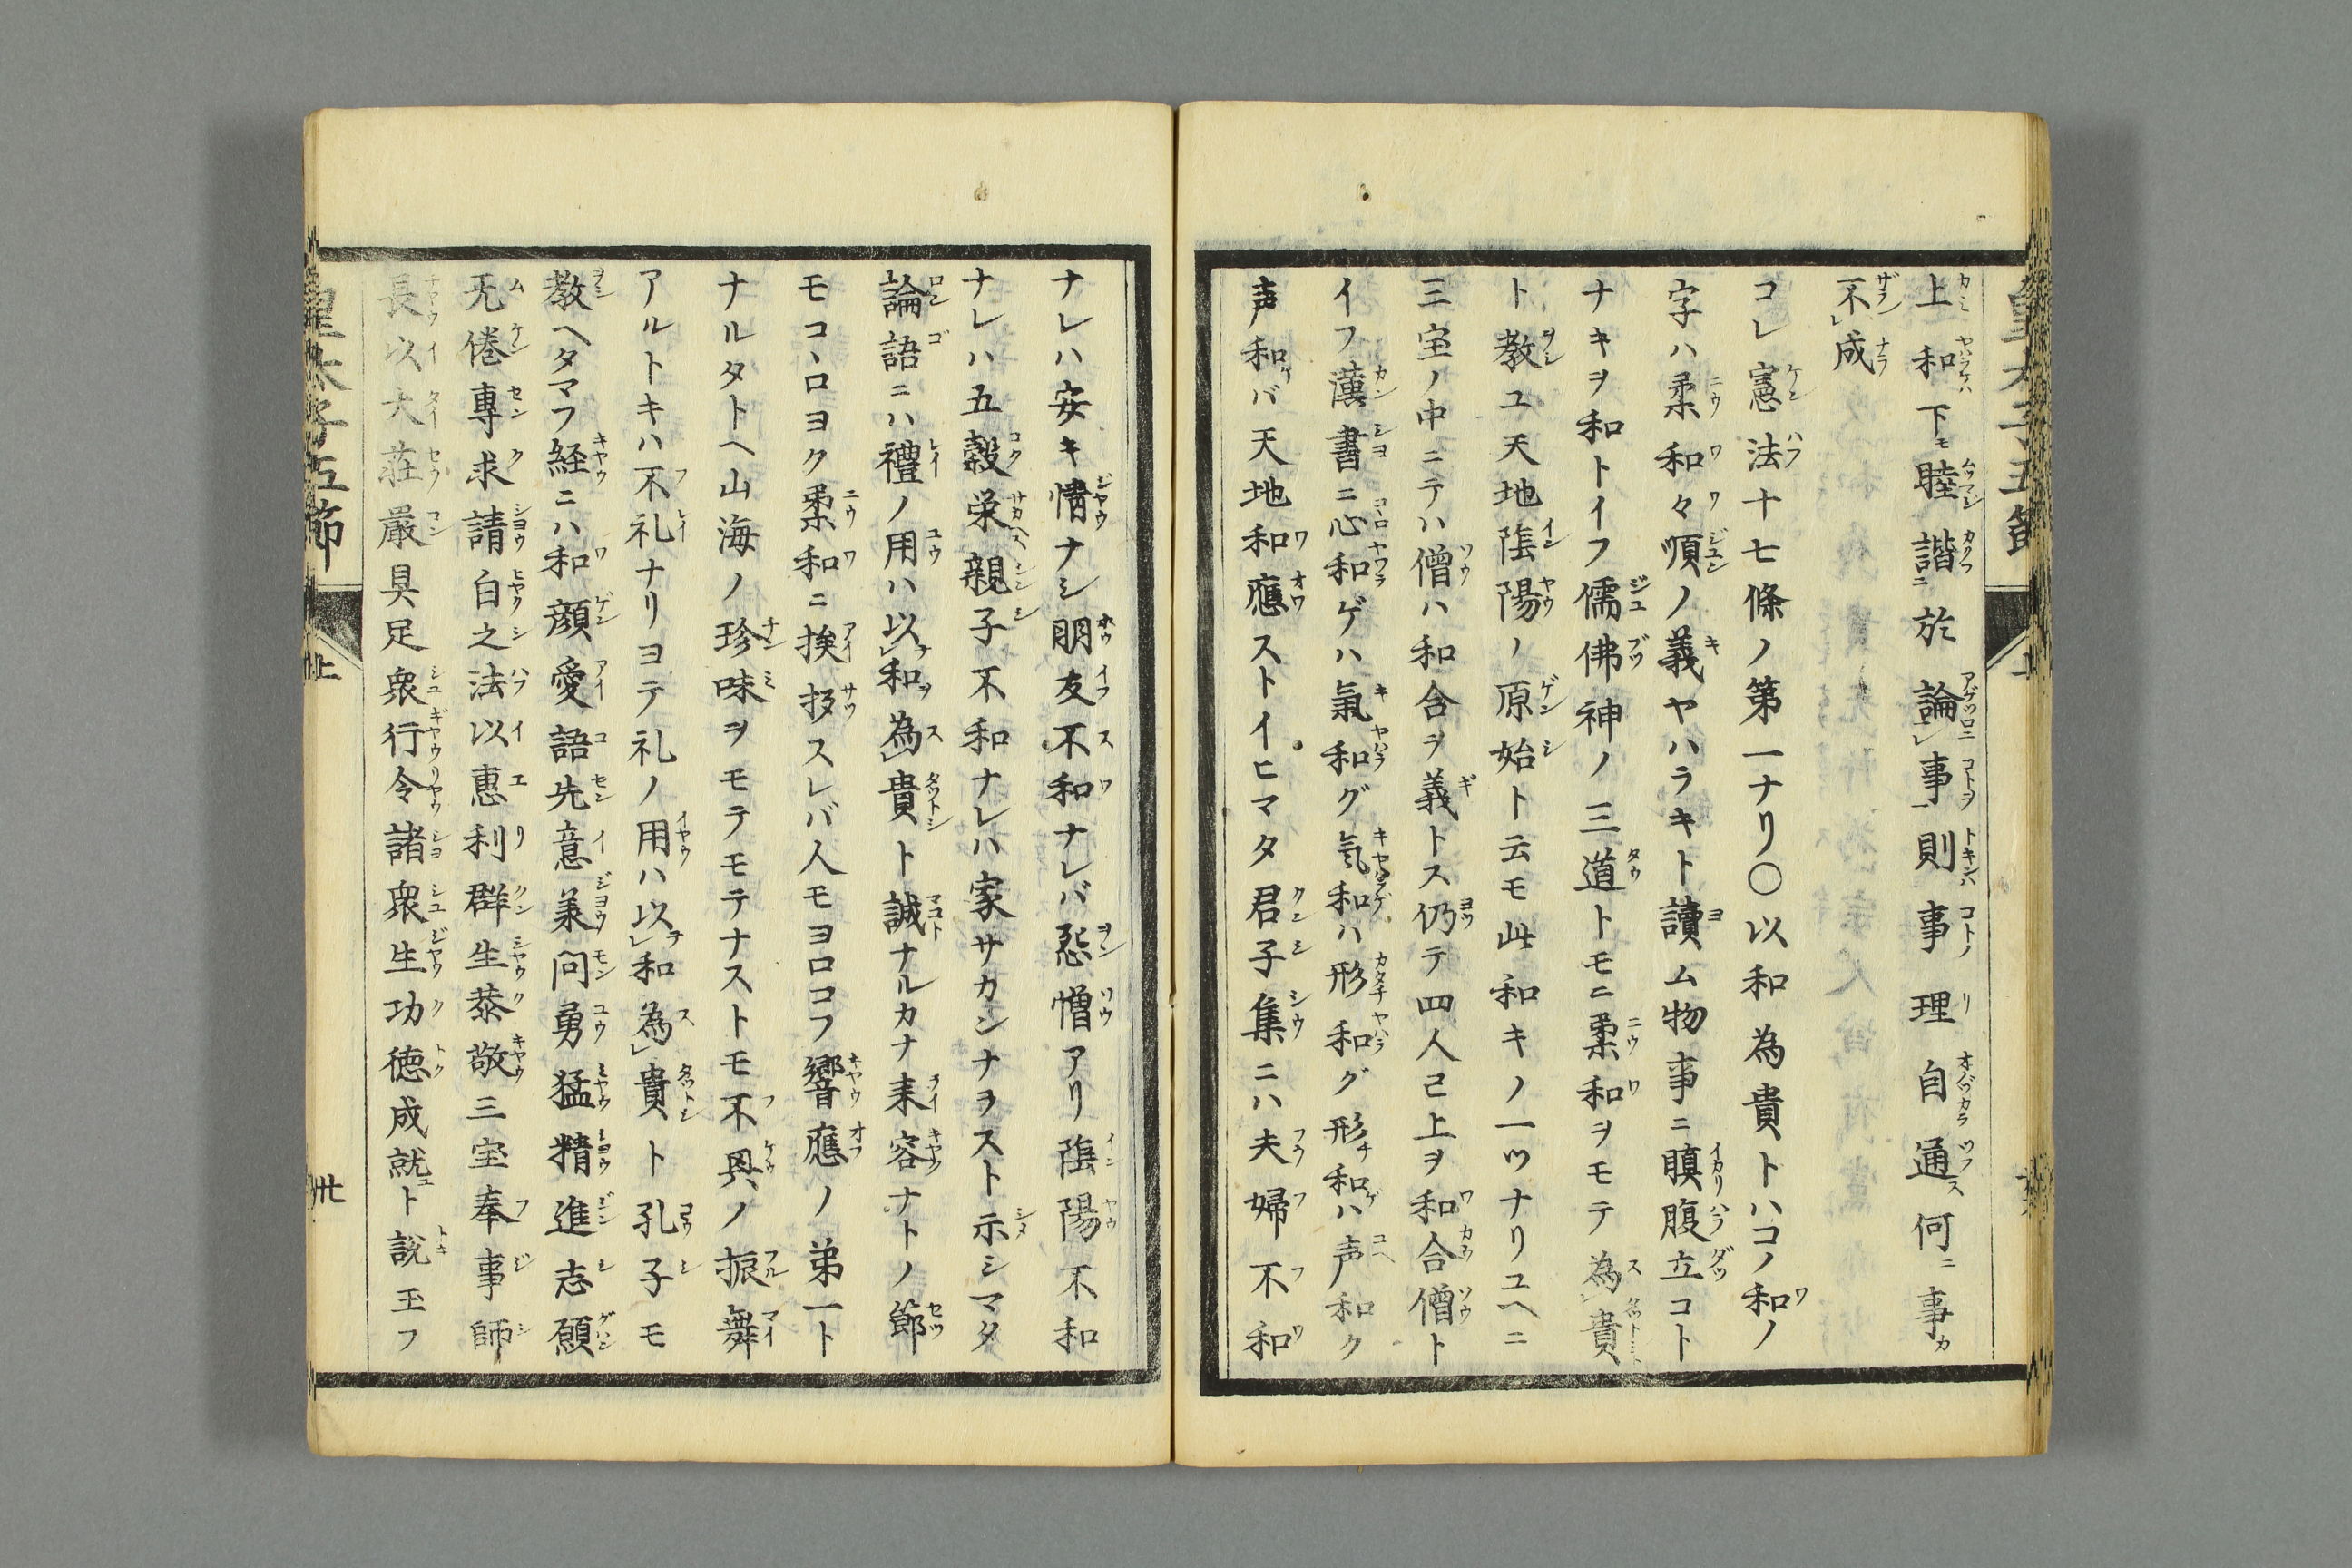 上和下モ睦諧ニ於論レ事一則事理自通ス何ニ事カ
不レ成
コレ憲法十七條ノ第一ナリ〇以和為貴トハコノ和ノ
字ハ柔和々順ノ義ヤハラキト讀ム物事ニ瞋腹立コト
ナキヲ和トイフ儒佛神ノ三道トモニ柔和ヲモテ為貴
ト教ユ天地陰陽ノ原始ト云モ此和キノ一ツナリユヘニ
三宝ノ中ニテハ僧ハ和合ヲ義トス仍テ四人已上ヲ和合僧ト
イフ漢書ニ心和ゲハ氣和グ気和ハ形和グ形チ和ゲハ声和ク
声和グバ天地和應ストイヒマタ君子集ニハ夫婦不和
ナレハ安キ情ナシ朋友不和ナレバ怨憎アリ陰陽不和
ナレハ五穀栄親子不和ナレハ家サカンナヲスト示シマタ
論語ニハ禮ノ用ハ以レ和為レ貴ト誠ナルカナ来容ナトノ節
モコヽロヨク柔和ニ挨拶スレバ人モヨロコフ響應ノ第一ト
ナルタトヘ山海ノ珍味ヲモテモテナストモ不興ノ振舞
アルトキハ不礼ナリヨテ礼ノ用ハ以レ和為レ貴ト孔子モ
教ヘタマフ経ニハ和顔愛語先意兼問勇猛精進志願
无倦專求請白之法以惠利群生恭敬三宝奉事師
長以大荘嚴具足衆行令諸衆生功徳成就ト説玉フ
皇太子五節
上
廿